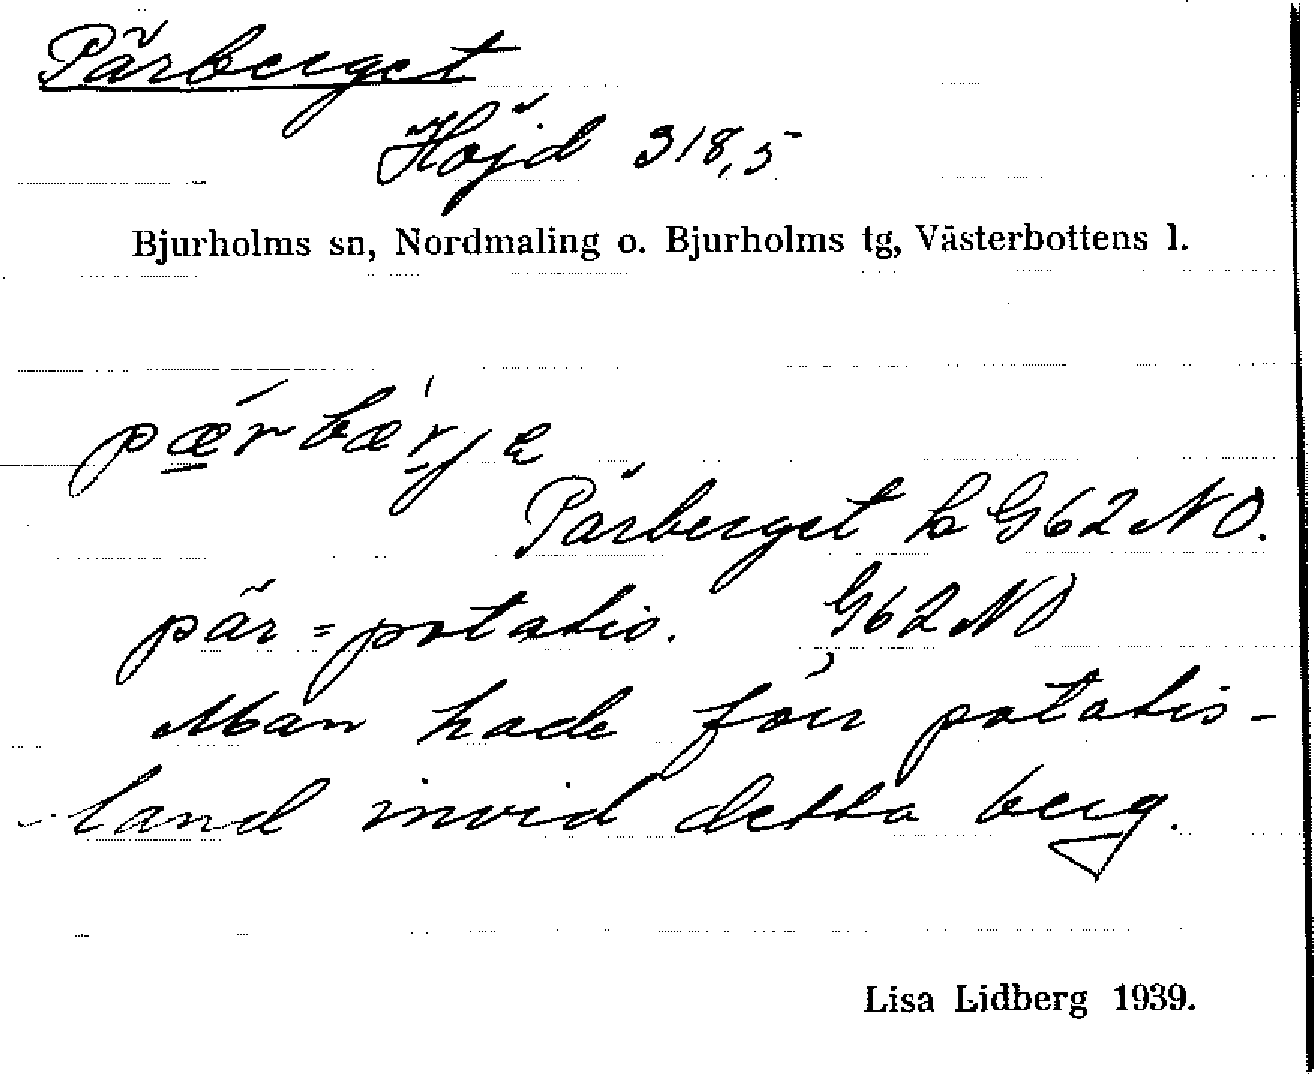 Pärberget
Höjd 318,5
Bjurholms sn, Nordmaling o. Bjurholms tg, Västerbottens l.
pǽrbærje
Pärberget k G62NO.
pär = potatis. G62NO
Man hade förr potatis-
land invid detta berg.
Lisa Lidberg 1939.